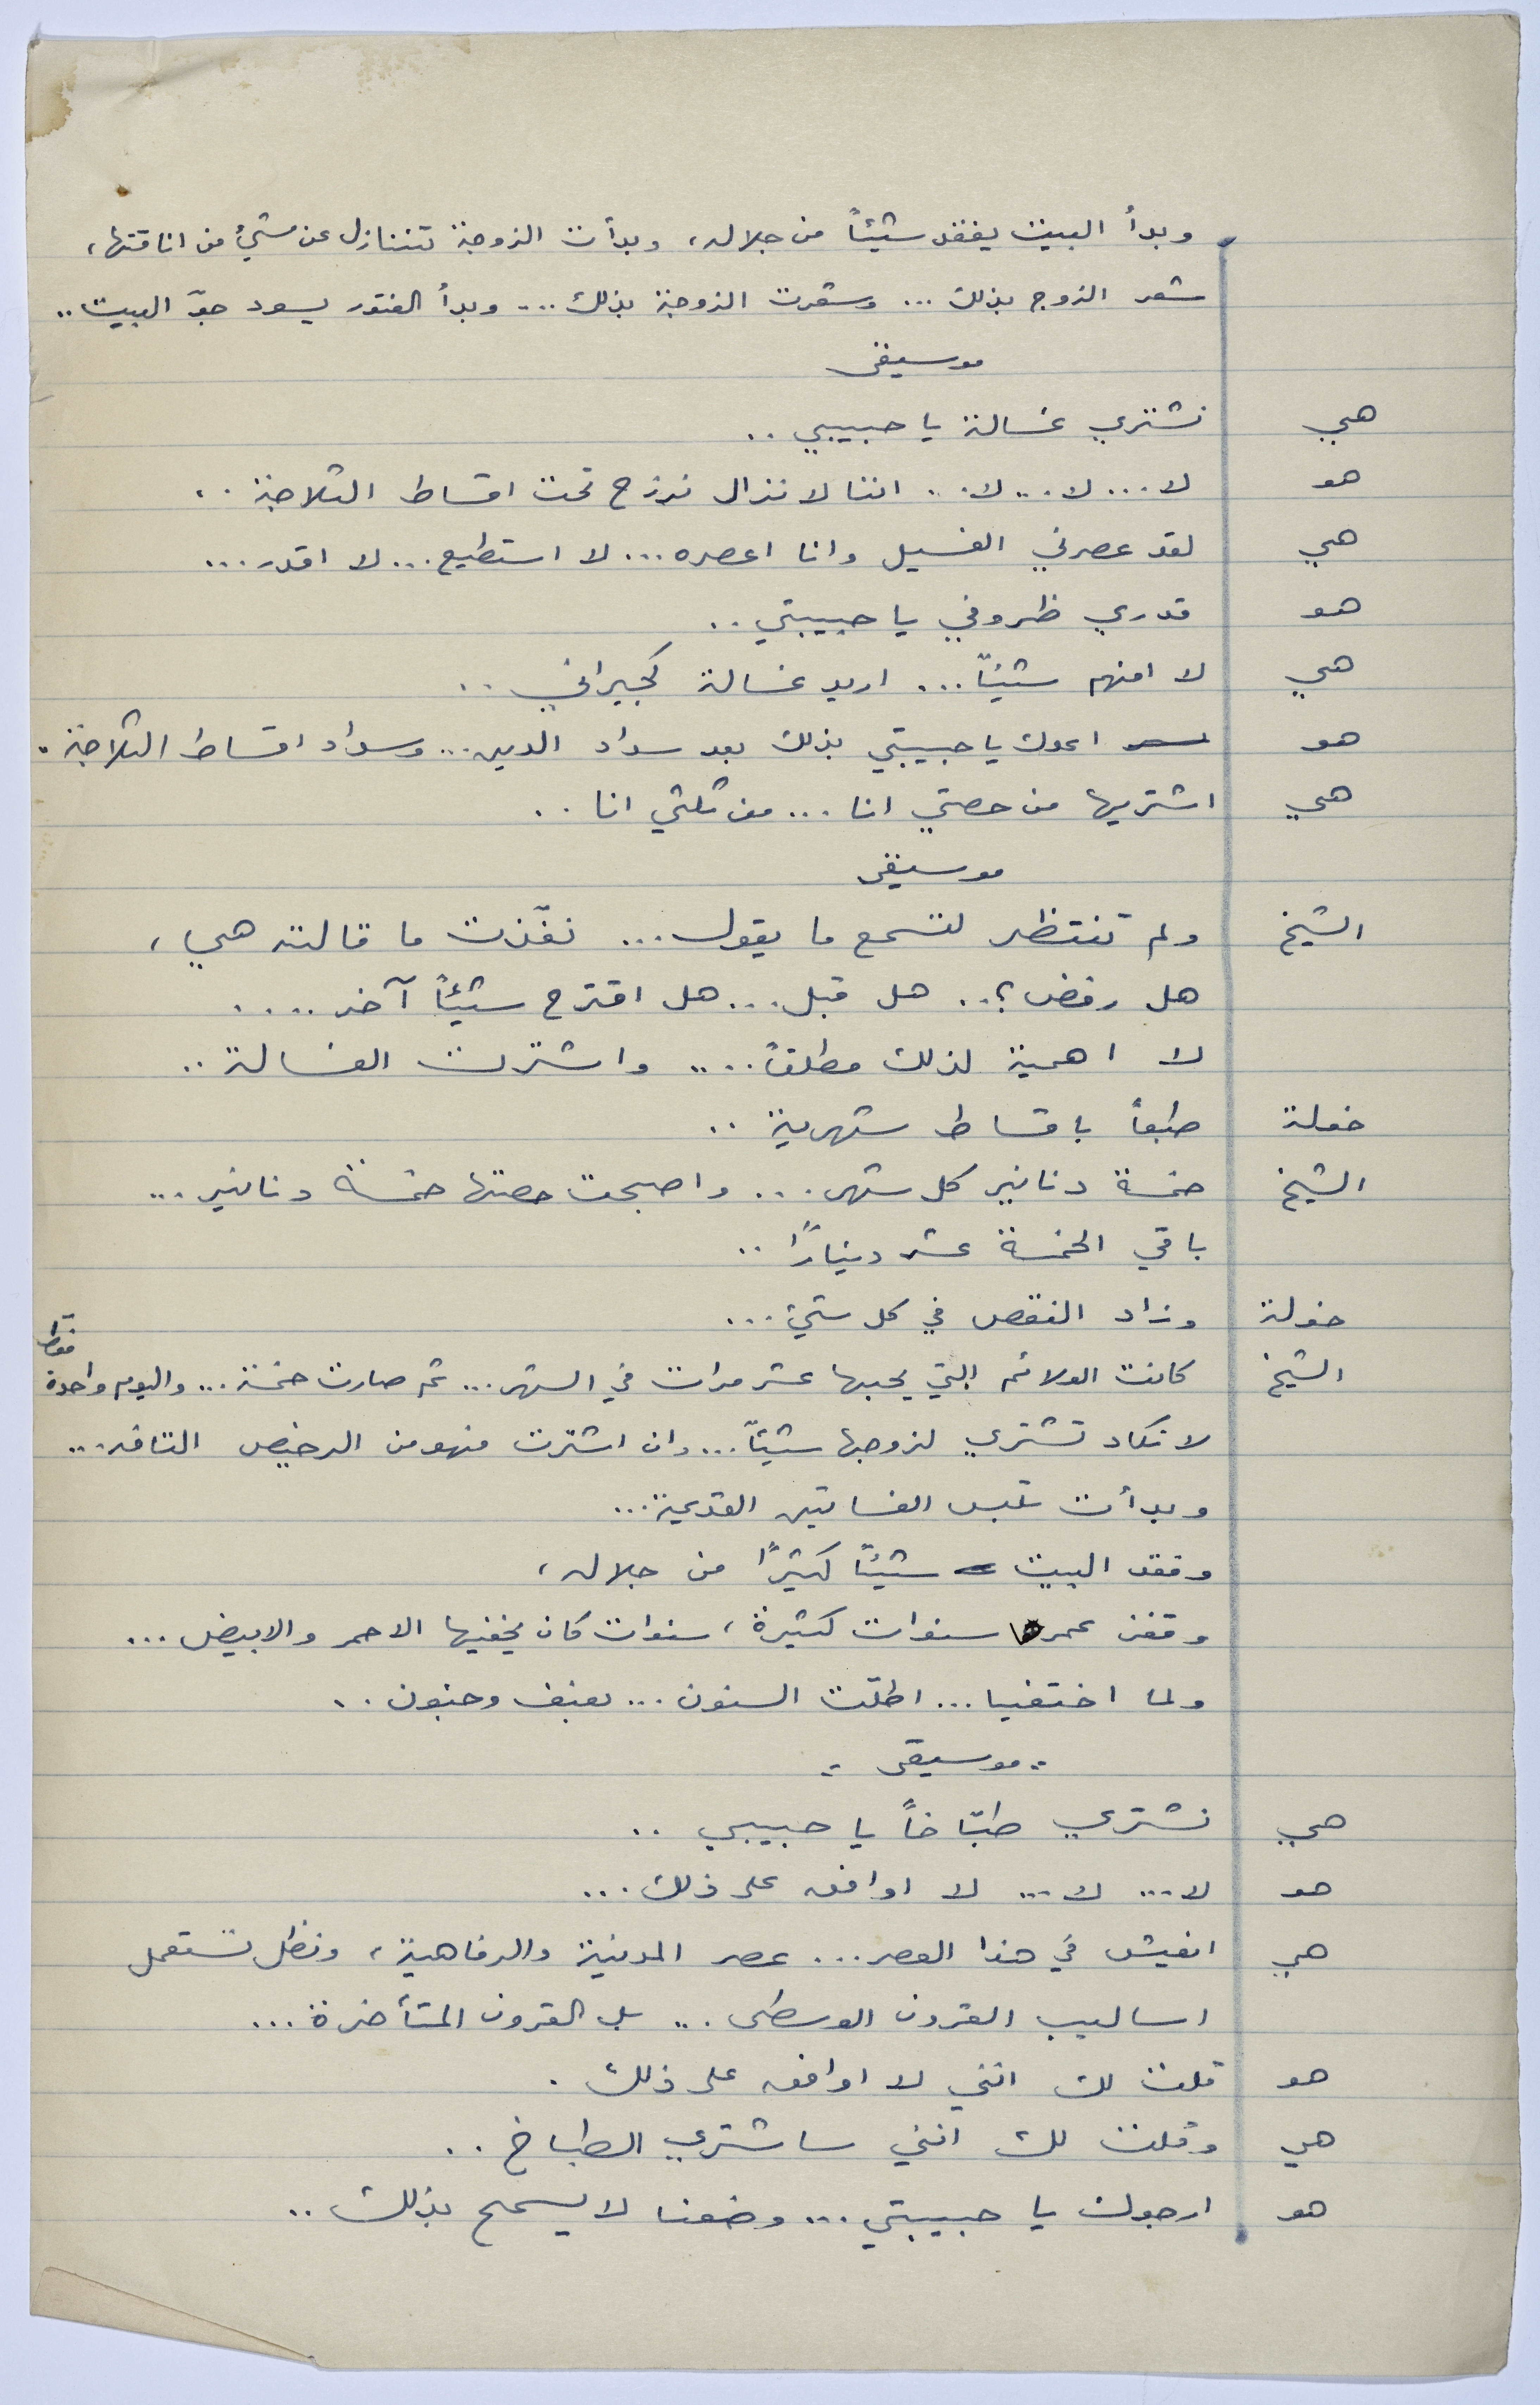 وبدأ البيت يفقد شيئاً من جلاله، وبدأت الزوجة تتنازل عن شيئ من اناقتها،
شعر الزوج بذلك ... وشعرت الزوجة بذلك ... وبدأ الفتور يسود جوّ البيت ..
موسيقى
هي نشتري غسالة يا حبيبي ..
هو لا ... لا ... لا .. اننا لا نزال نرزح تحت اقساط الثلاجة ..
هي لقد عصرني الغسيل وانا اعصره ... لا استطيع ... لا اقدر ...
هو قدري ظروفي يا حبيبتي ..
هي لا افهم شيئاً ... اريد غسالة كجيراني ..
هو اعدك يا حبيبتي بذلك بعد سداد الدين ... وسداد اقساط الثلاجة .
هي اشتريها من حصتي انا ... من ثلثي انا ..
موسيقى
الشيخ ولم تنتظر لتسمع ما يقول ... نفّذت ما قالته هي،
هل رفض؟ .. هل قبل ... هل اقترح شيئاً آخر ....
لا اهمية لذلك مطلقاً .... واشترت الغسالة ..
خولة طبعاً باقساط شهرية ..
الشيخ خمسة دنانير كل شهر ... واصبحت حصتها خمسة دنانير ...
باقي الخمسة عشر ديناراً ..
خولة وزاد النقص في كل شيئ ...
الشيخ كانت الولائم التي يحبها عشر مرات في الشهر ... ثم صارت خمسة ... واليوم واحدة فقط
لا تكاد تشتري لزوجها شيئاً ... وان اشترت فهو من الرخيص التافه ...
وبدأت تلبس الفساتين القديمة ...
وفقد البيت شيئاً كثيراً من جلاله،
وقفز عمرها سنوات كثيرة، سنوات كان يخفيها الاحمر والابيض ...
ولما اختفيا ... اطلّت السنون ... بعنف وجنون ..
- موسيقى -
هي نشتري طبّاخاً يا حبيبي ..
هو لا ... لا ... لا اوافق على ذلك ...
هي انعيش في هذا العصر ... عصر المدنية والرفاهية، ونظل نستعمل
اساليب القرون الوسطى ... بل القرون المتأخرة ...
هو قلت لك انني لا اوافق على ذلك .
هي وقلت لك انني ساشتري الطباخ ..
هو ارجوك يا حبيبتي ... وضعنا لا يسمح بذلك ..